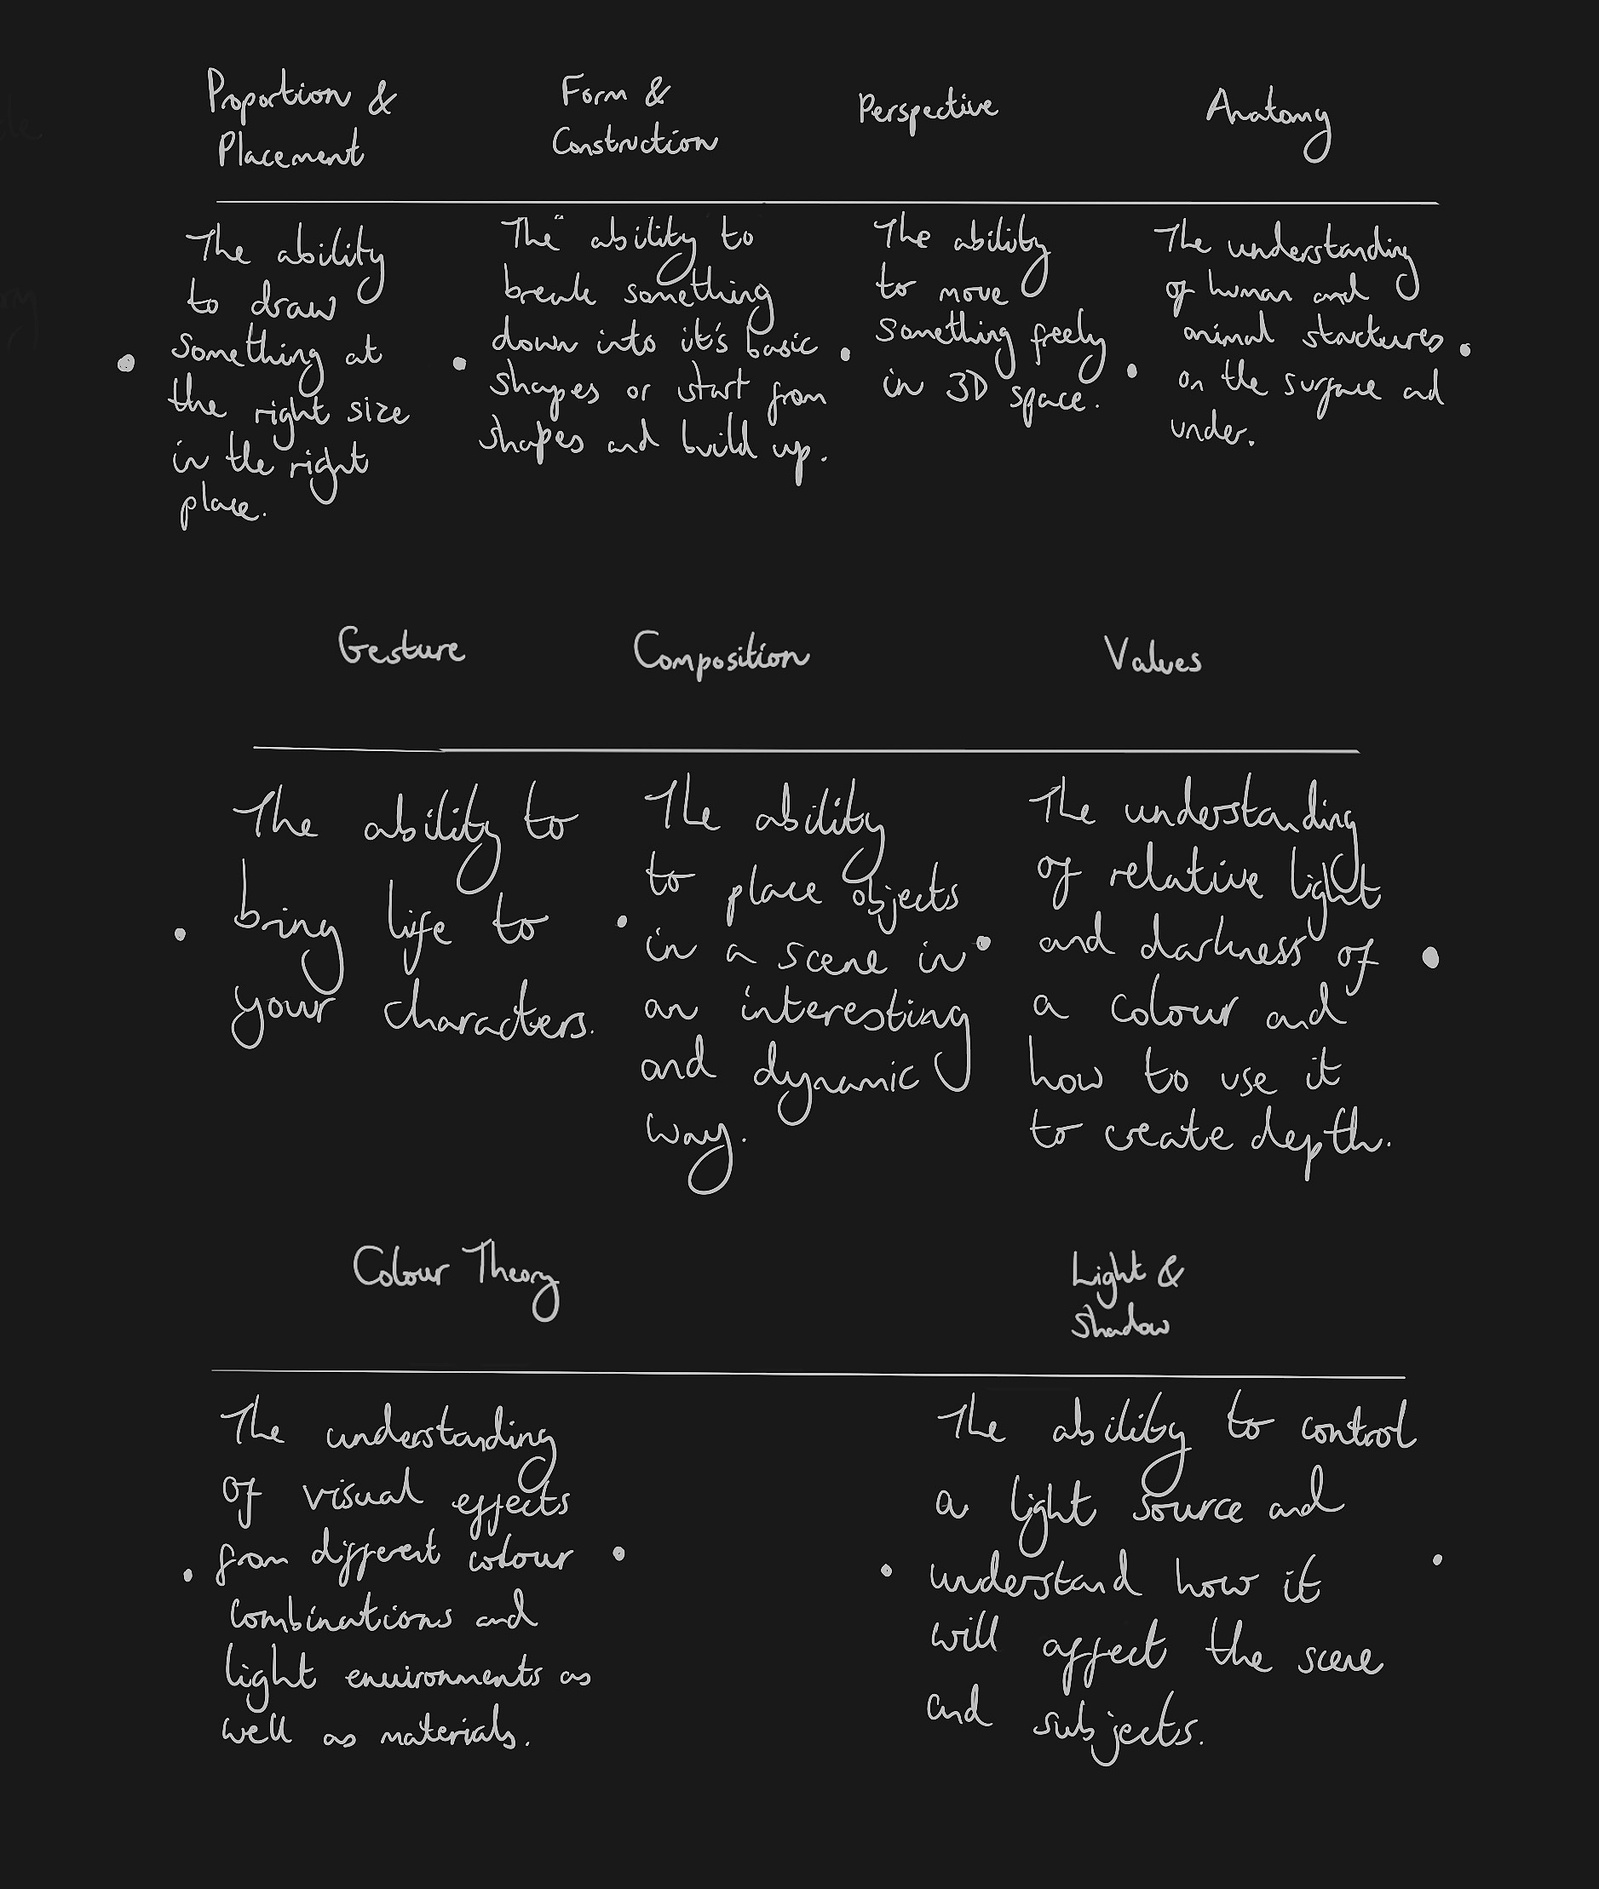 Proportion &
Placement
Form &
Construction
Perspective
Anatomy
The ability
to draw
something at
the right size
in the right
place.
The ability to
break something
down into it's basic
shapes or start from
shapes and build up.
The ability
to move
something freely
in 3D space.
The understanding
of human and
animal structures
on the surface and
under.
Gesture
Composition
Values
The ability to
bring life to
your characters.
The ability
to place objects
in a scene in
an interesting
and dynamic
way.
The understanding
of relative light
and darkness of
a colour and
how to use it
to create depth.
Colour Theory
Light &
Shadow
The understanding
of visual effects
from different colour
combinations and
light environments as
well as materials.
The ability to control
a light source and
understand how it
will affect the scene
and subjects.